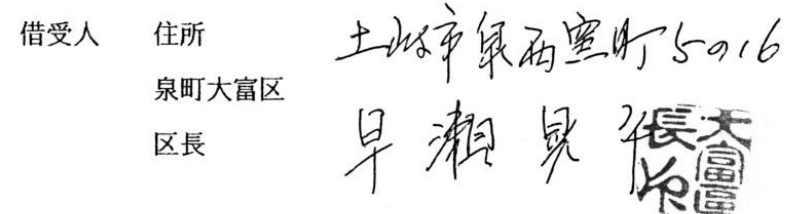 借受人 住所 土岐市泉西窯町5の16
泉町大富区
区長 早瀬晃
大富区
長印